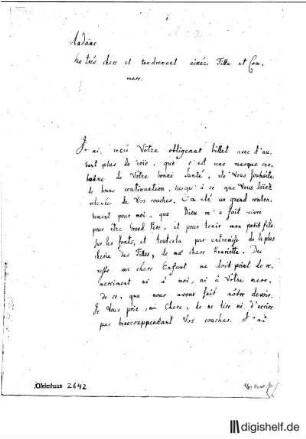 Madame
ma très chere et tendrement aimée Fille et Com,
mere.
J'ai, reçû Votre obligeant billet avec d'au,
tant plus de joie, que c'est une marque cer,
taine de Votre bonne Santé, Je Vous souhaite
de bonne continuation, jusqu'à ce que Vous soiez
relevée de Vos couches. Ça a été un grand conten,
tement pour moi, que Dieu m'a fait vivre
pour être Grand Pere, et pour tenir mon petit fils
sur les fonts, et tout cela par l'entremise de la plus
cherie des Filles, de ma chere Henriette. Du
reste un chere Enfant ne doit point de re,
merciment ni à moi, ni à Votre mere,
de ce, que nous avons fait nôtre devoir.
Je Vous prie, ma Chere, de ne me écrire
pas Vos couches. J'ai
Oleinhaus 2642
digishelf.de